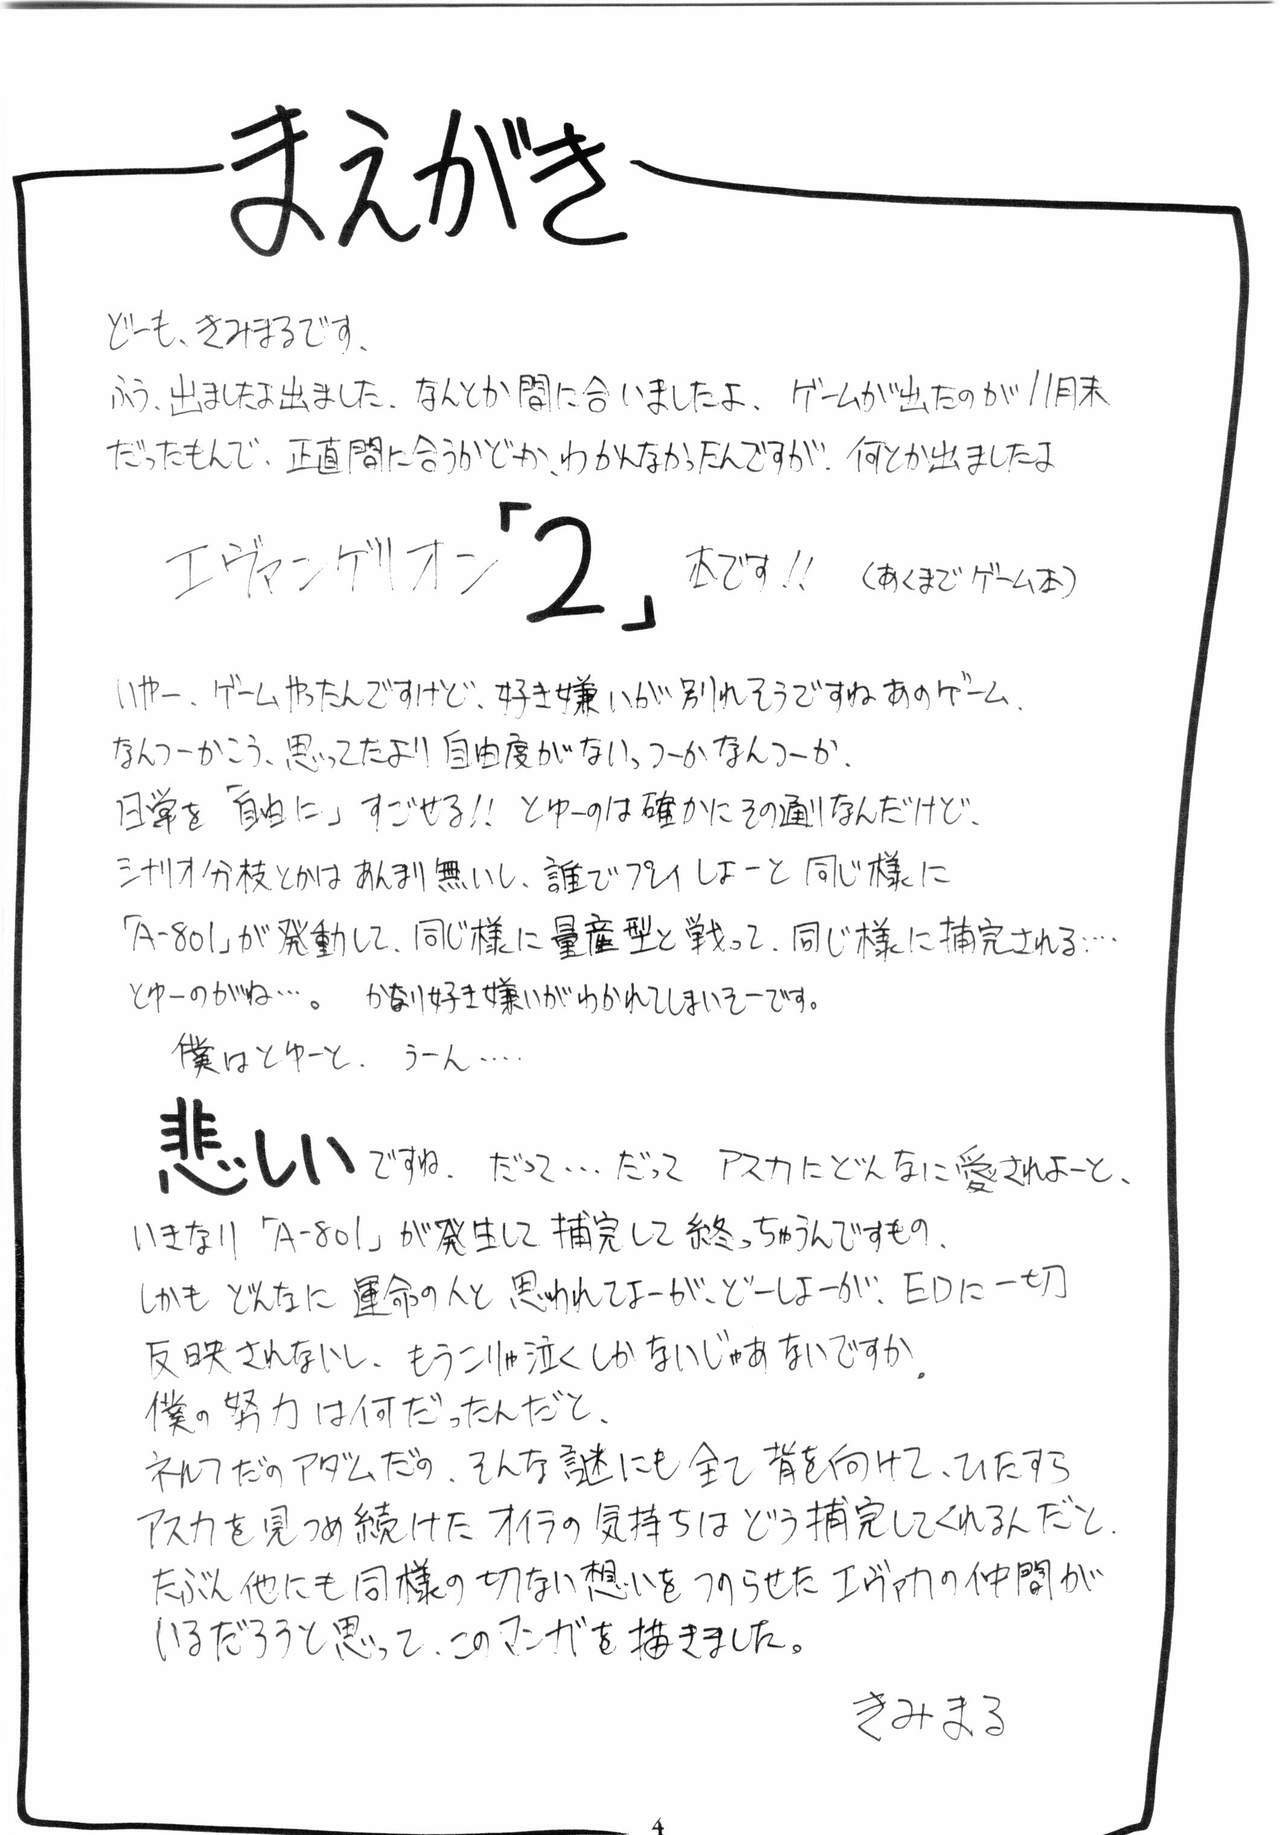 まえがき
どーも、きみまるです、
ふう、出ましたよ出ました、なんとか間に合いましたよ、ゲームが出たのが11月末
だったもんで、正直間に合うかどか、わかんなかったんですが、何とか出ましたよ
エヴァンゲリオン「2」本です!!（あくまでゲーム本）
いやー、ゲームやったんですけど、好き嫌いが別れそうですねあのゲーム、
なんつーかこう、思ってたより自由度がないっつーかなんつーか、
日常を「自由に」すごせる!!とゆーのは確かにその通りなんだけど、
シナリオ分枝とかはあんまり無いし、誰でプレイしよーと同じ様に
「A-801」が発動して、同じ様に量産型と戦って、同じ様に捕完される…‥
とゆーのがね…。かなり好き嫌いがわかれてしまいそーです。
僕はとゆーと、うーん……
悲しいですね、だって…だってアスカにどんなに愛されよーと、
いきなり「A-801」が発生して捕完して終っちゃうんですもの、
しかもどんなに運命の人と思われてよーが、どーしよーが、EDに一切
反映されないし、もうこりゃ泣くしかないじゃあないですか。
僕の努力は何だったんだと、
ネルフだのアダムだの、そんな謎にも全て背を向けて、ひたすら
アスカを見つめ続けたオイラの気持ちはどう捕完してくれるんだと、
たぶん他にも同様の切ない想いをつのらせたエヴァカの仲間が
いるだろうと思って、このマンガを描きました。
きみまる
4